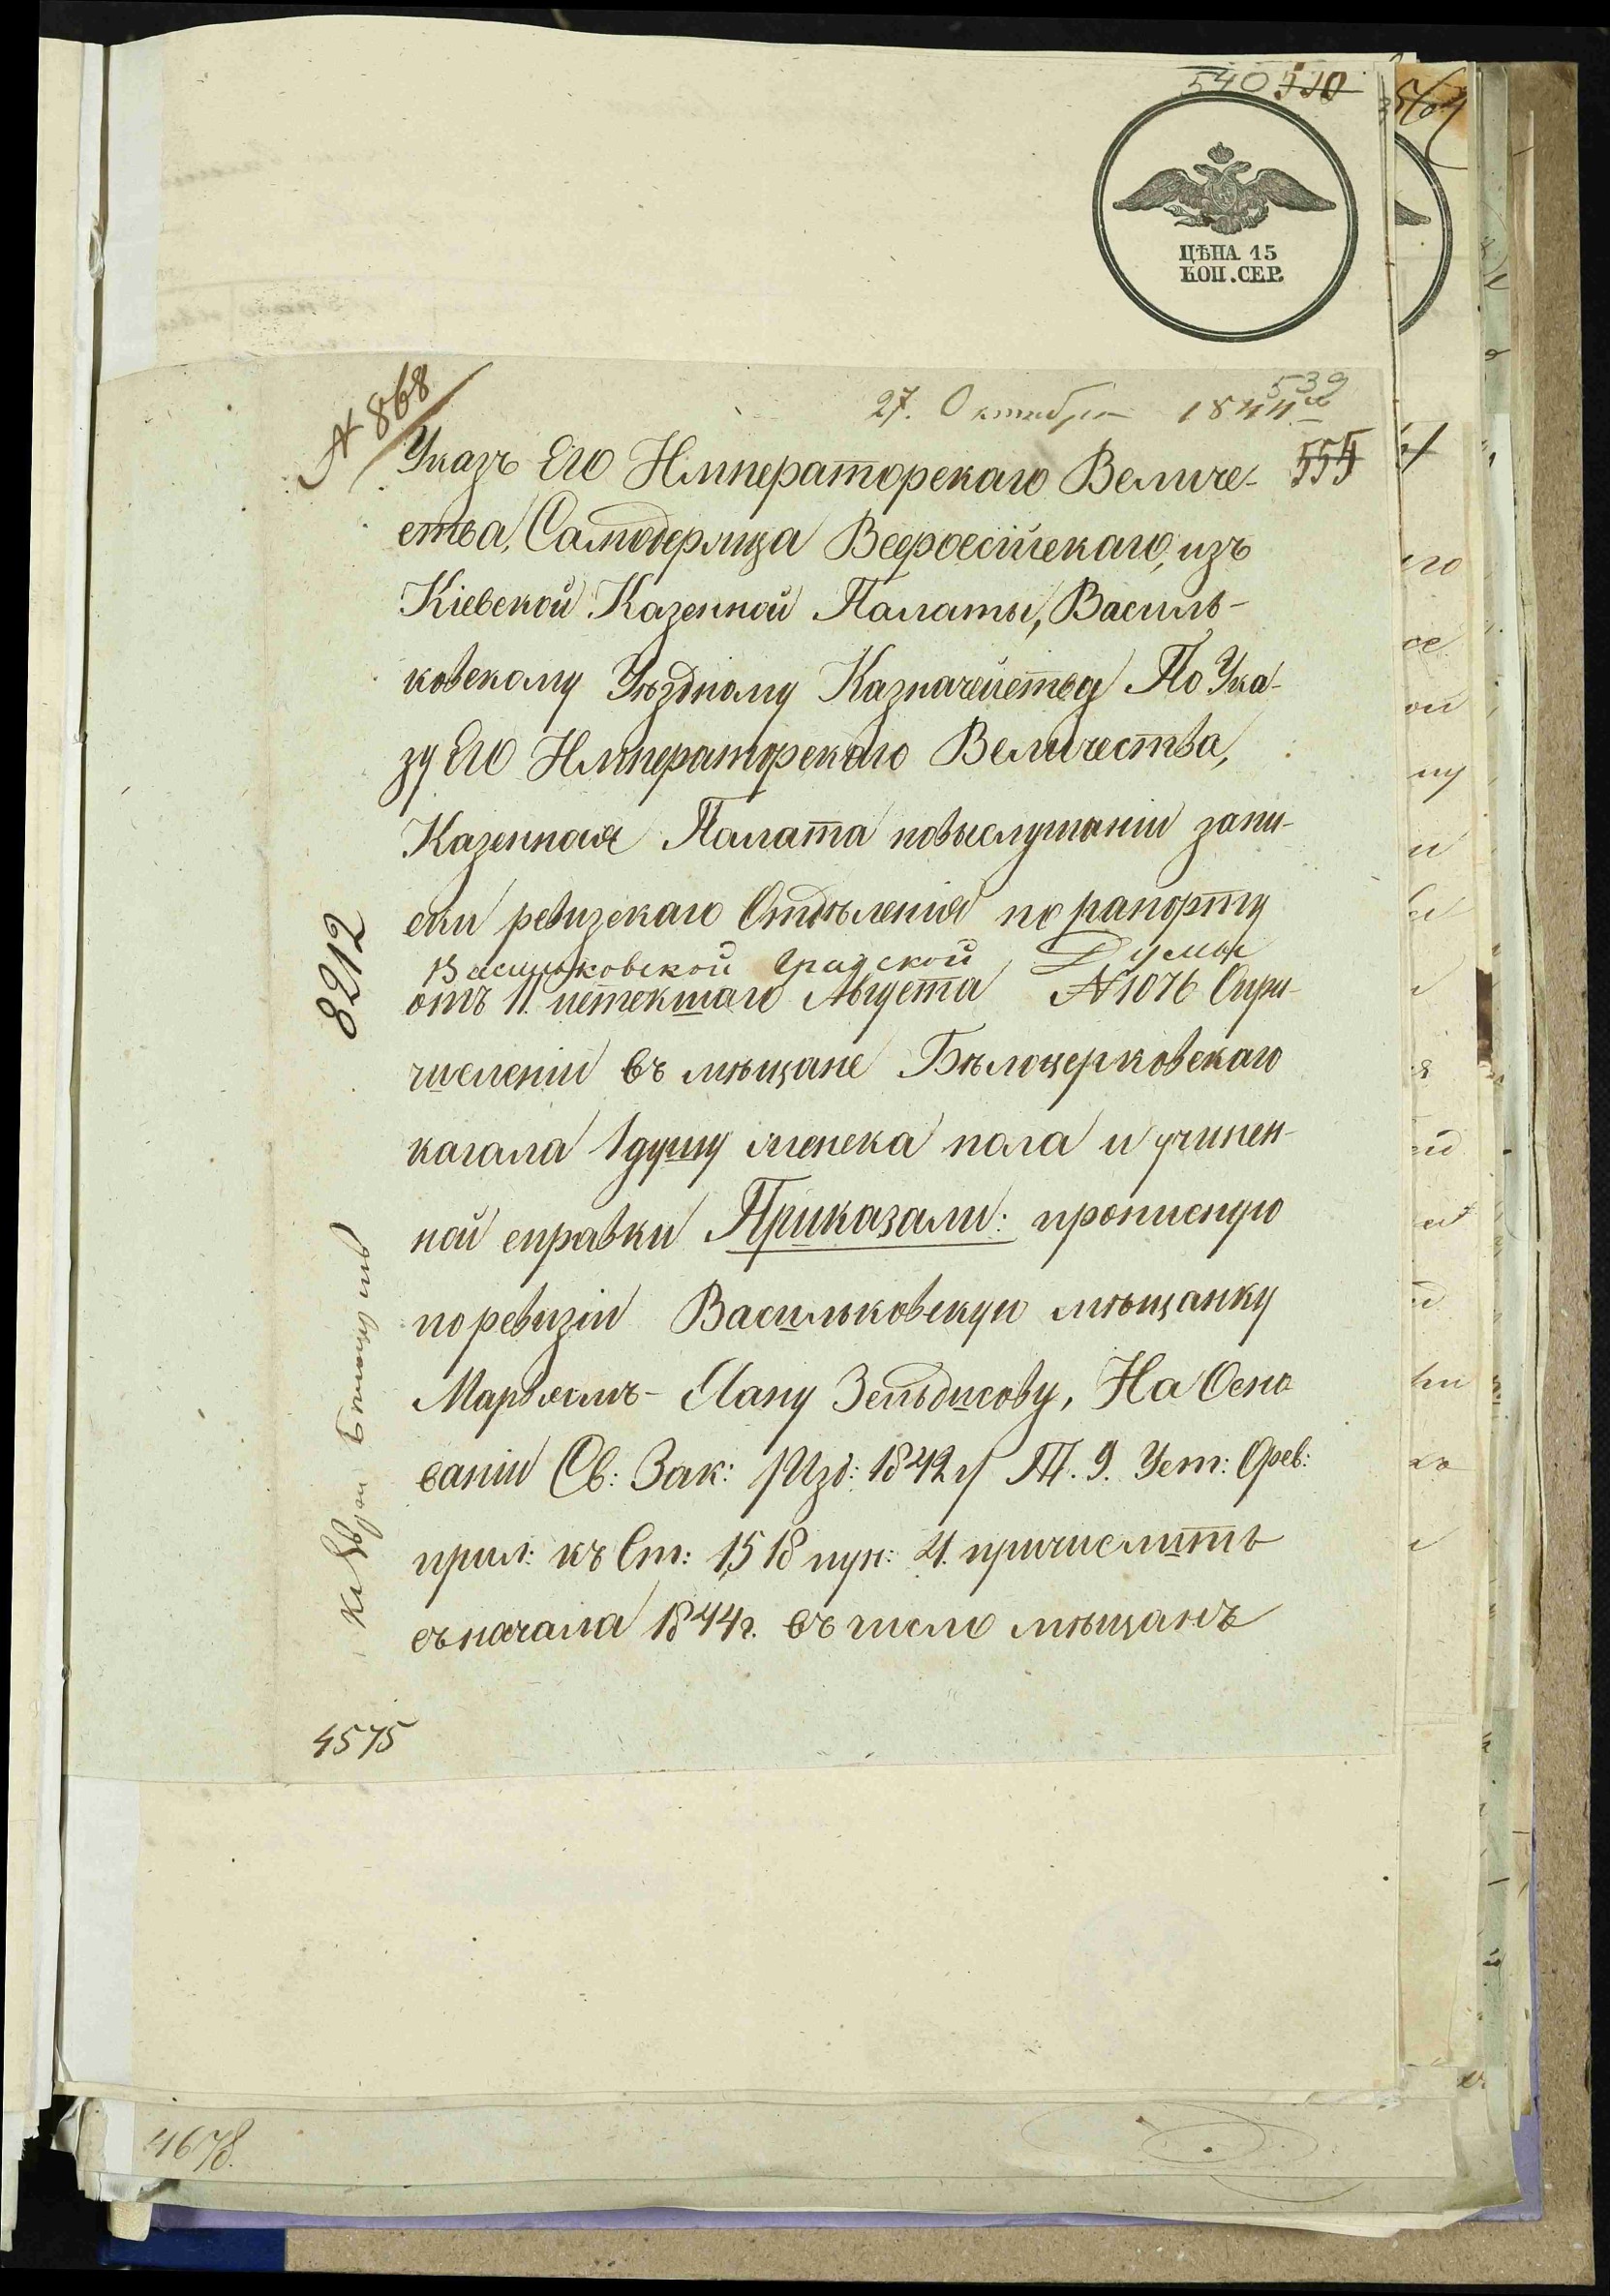 540 510
ЦѢНА 15
КОП. СЕР.
№ 868
539
27. Октября 1844го
555
Указъ Его Императорскаго Величе-
ства, Самодержца Всероссійскаго, изъ
Кіевской Казенной Палаты, Василь-
ковскому Уѣздному Казначейству По Ука-
зу Его Императорскаго Величества,
Казенная Палата повыслушаніи запи-
ски ревизскаго Отдѣленія по рапорту
Васильковской Градской Думы
отъ 11. истекшаго Августа № 1076 Опри-
численіи въ мѣщане Бѣлоцерковскаго
кагала 1 душу женска пола и учинен-
ной справки Приказали: прописную
поревизіи Васильковскую мѣщанку
Марьямъ-Хану Зельдисову, На Осно
ваніи Св: Зак: /Изд: 1842 г/ Т. 9. Уст: Орев:
прил: къ Ст: 1518 пун: 4. причислить
съначала 1844 г. въ число мѣщанъ
8212
4575
4678.